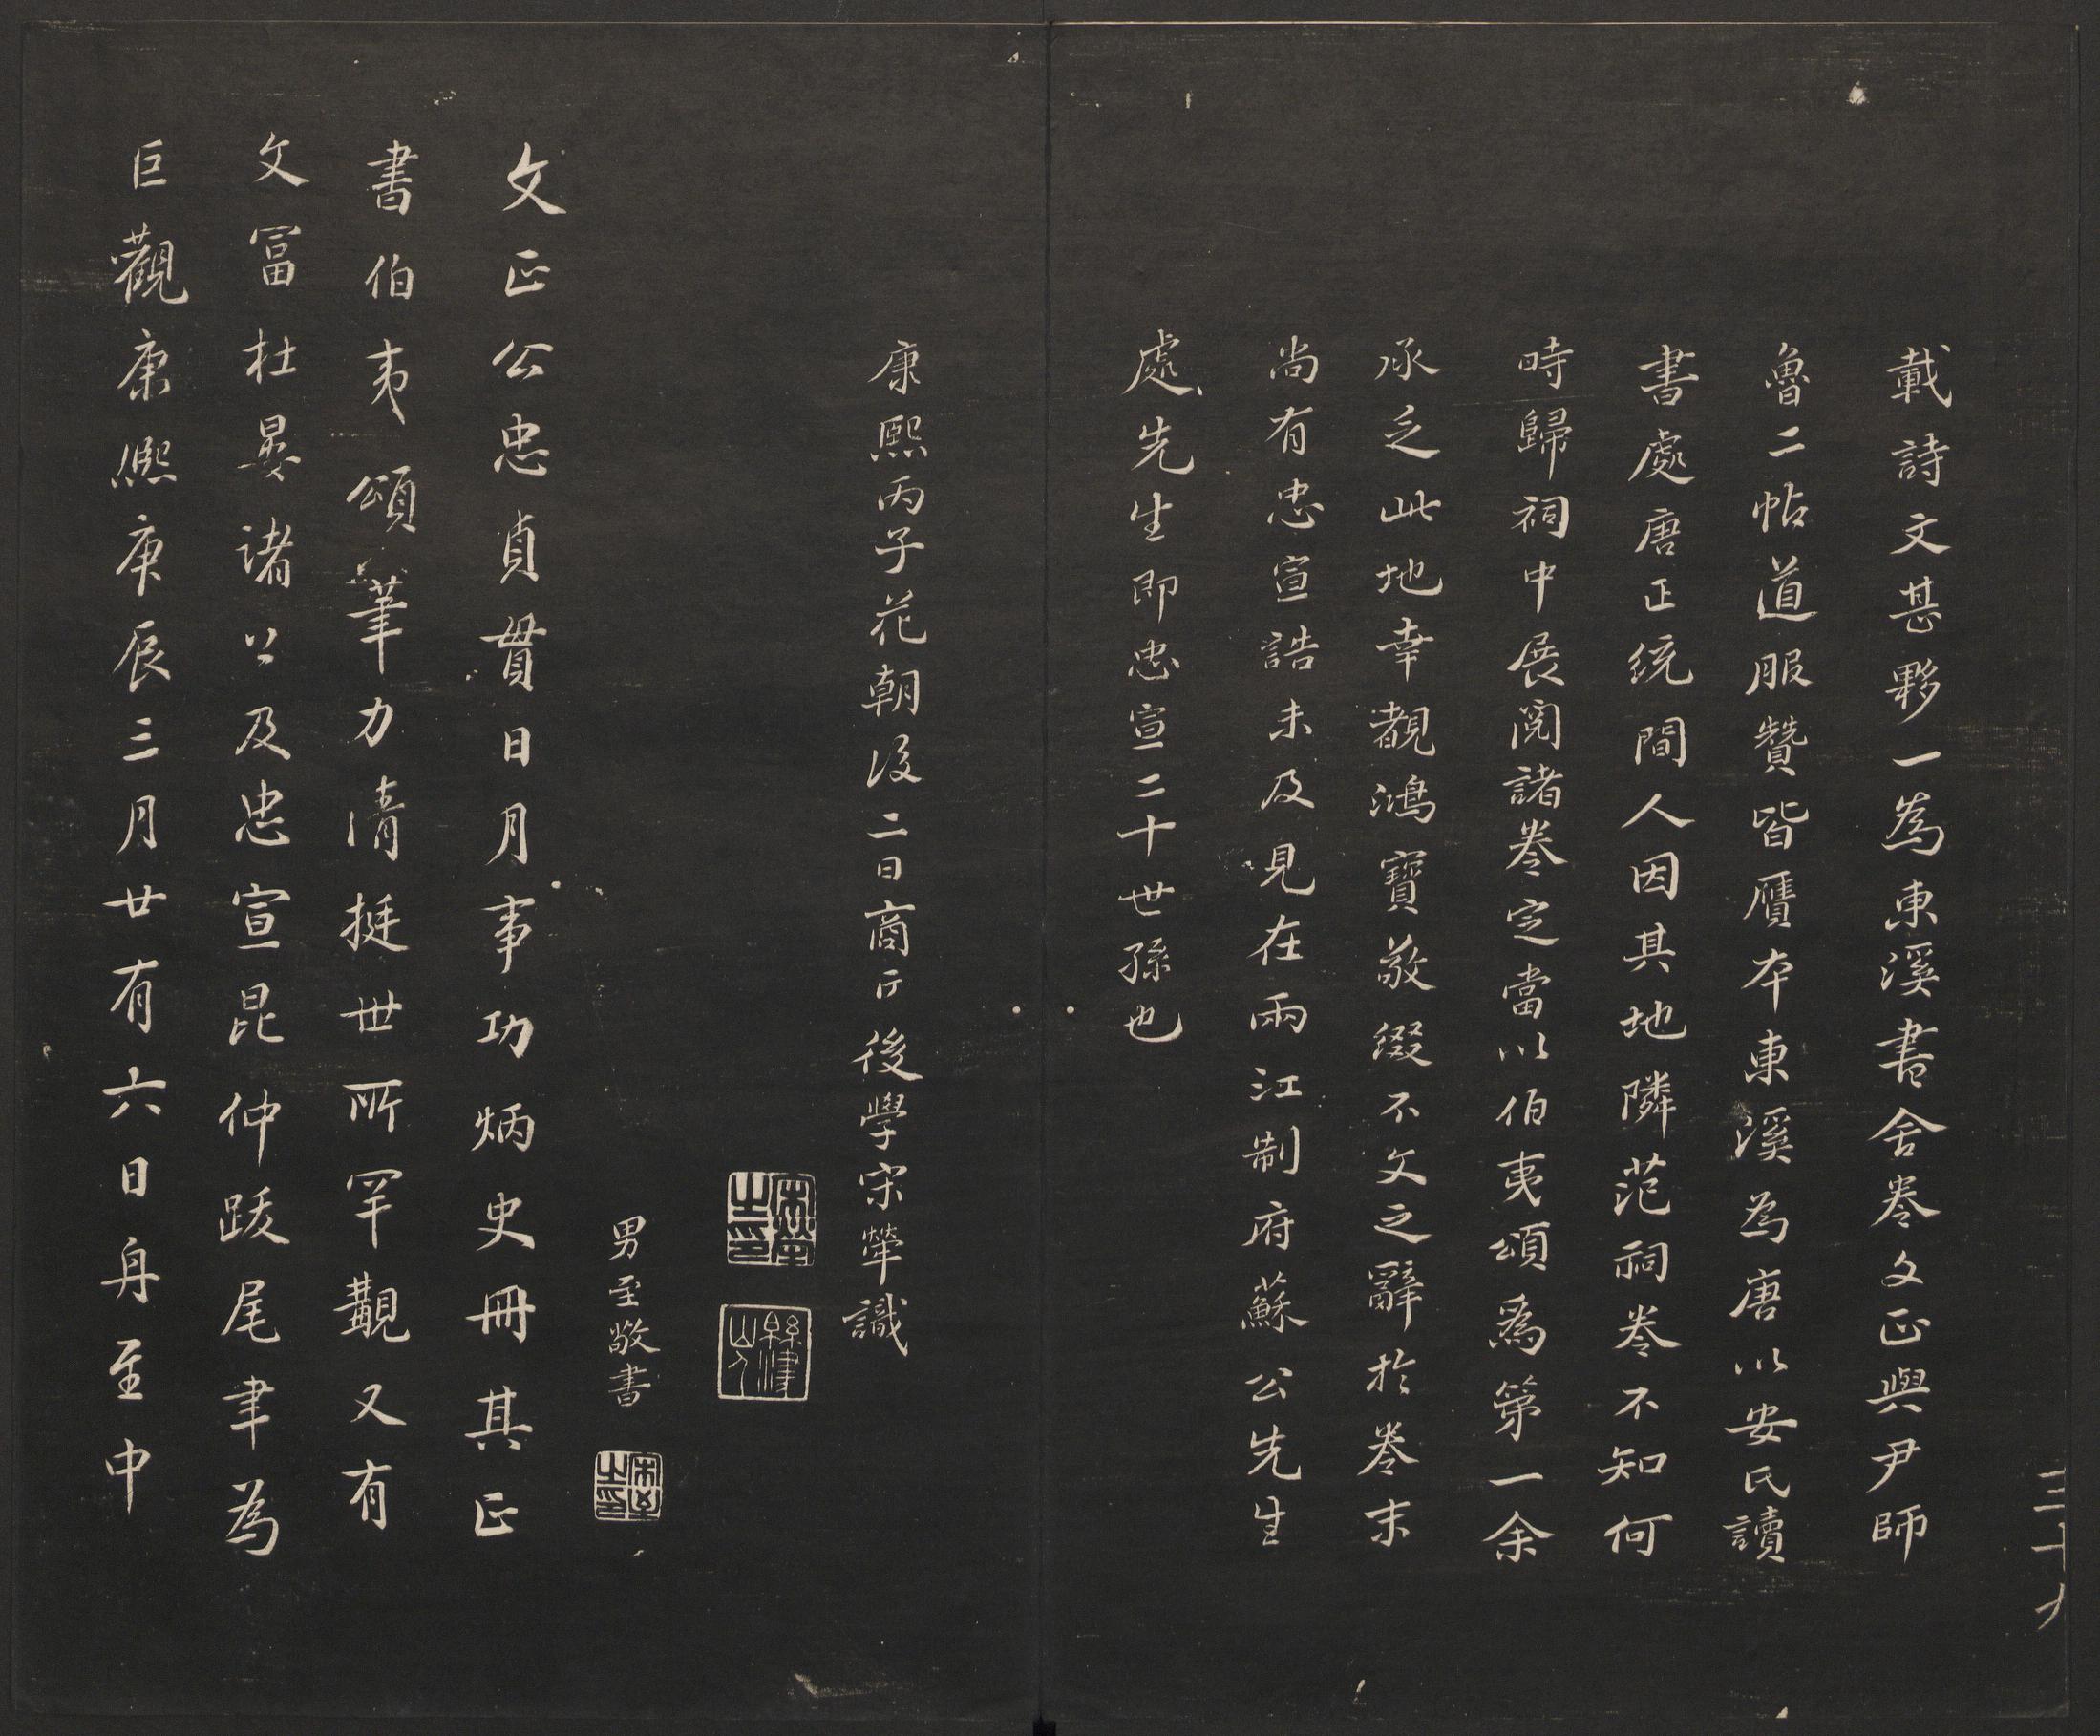 三十九
載詩文甚夥一為東溪書舍卷文正與尹師
魯二帖道服贊皆贋本東溪為唐以安氏讀
書處唐正統間人因其地隣范祠卷不知何
時歸祠中展閱諸卷定當以伯夷頌爲第一余
承乏此地幸覩鴻寶敬綴不文之辭於卷末
尚有忠宣誥未及見在兩江制府蘇公先生
處先生即忠宣二十世孫也
康熙丙子花朝後二日商丘後學宋犖識
宋犖之印
緜津山人
男至敬書
宋至之印
文正公忠貞貫日月事功炳史冊其正
書伯夷頌筆力清挺世所罕覯又有
文富杜晏諸公及忠宣昆仲跋尾聿為
巨觀康熙庚辰三月廿有六日舟至中